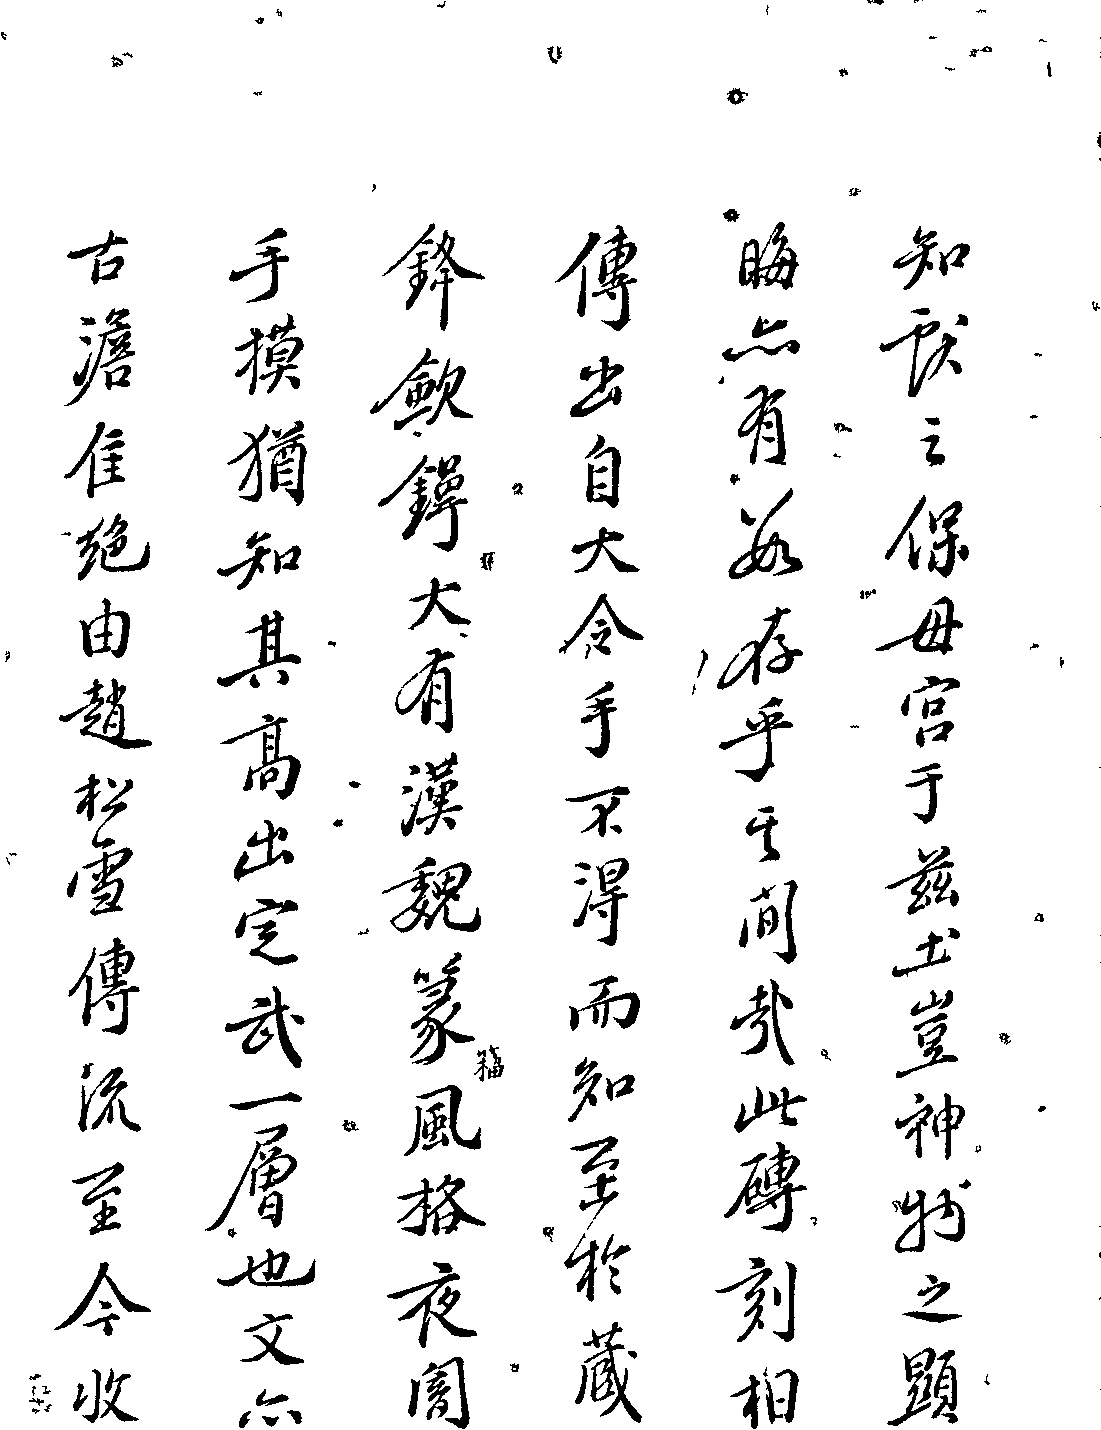 知獻之保母宮于兹土豈神物之顯
晦亦有數存乎其間哉此磚刻相
傳出自大令手不得而知至於藏
鋒斂鍔大有漢魏篆風格夜闇
手摸猶知其高出定武一層也文亦
古澹佳絶由趙松雪傳流至今收